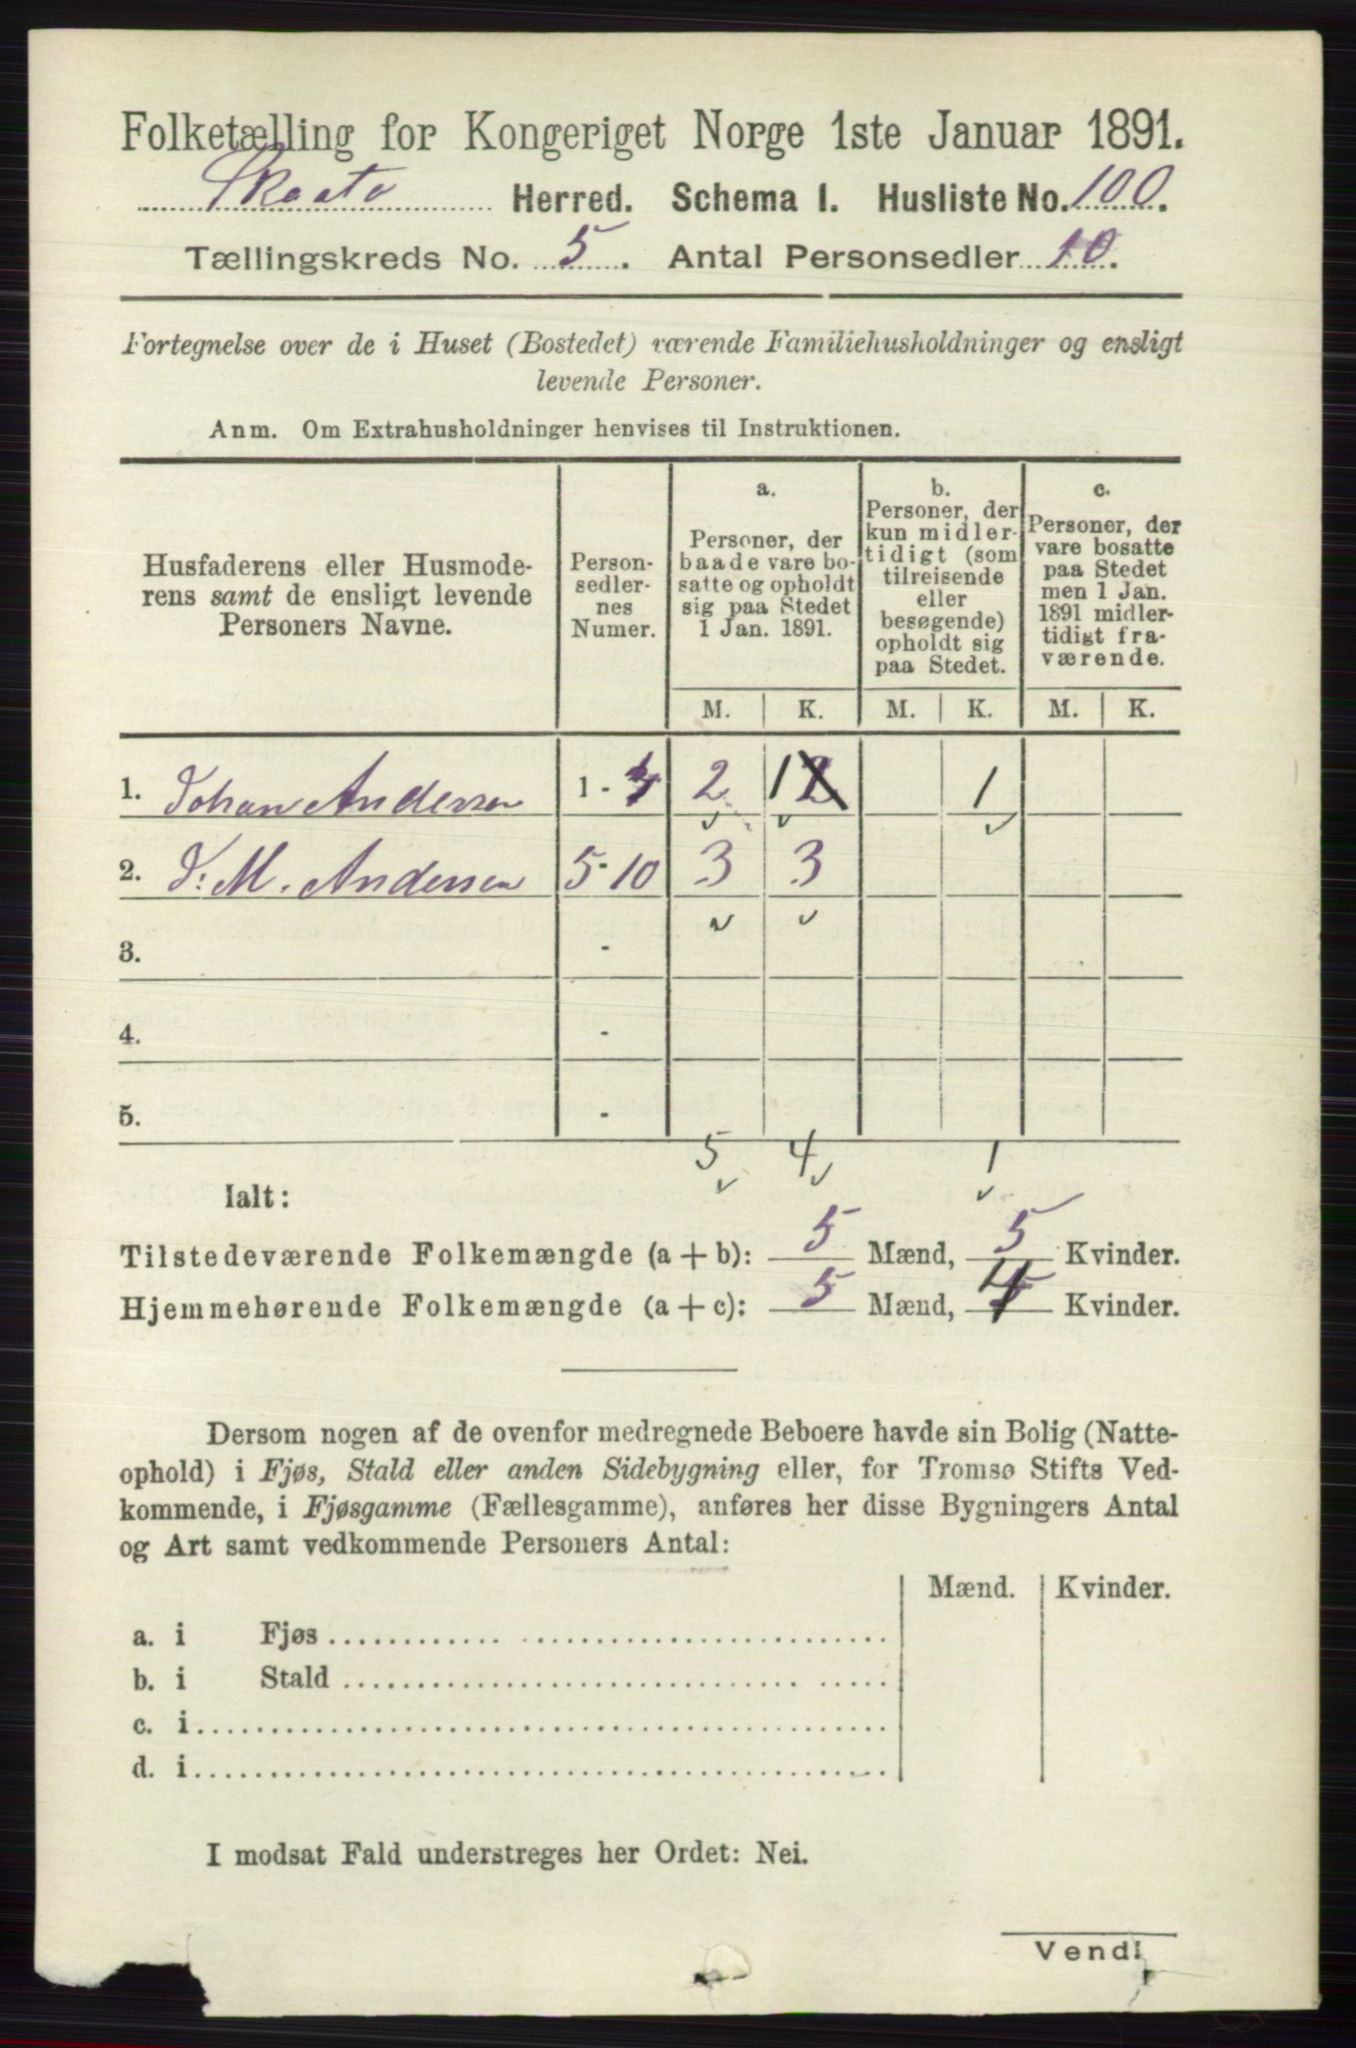 Folketælling for Kongeriget Norge 1ste Januar 1891.
Skaatø Herred. Schema I. Husliste No. 100.
Tællingskreds No. 5. Antal Personsedler 10.
Fortegnelse over de i Huset (Bostedet) værende Familiehusholdninger og ensligt
levende Personer.
Anm. Om Extrahusholdninger henvises til Instruktionen.
Husfaderens eller Husmode-
rens samt de ensligt levende
Personers Navne.
Person-
sedler-
nes
Numer.
a.
Personer, der
baade vare bo-
satte og opholdt
sig paa Stedet
1 Jan. 1891.
b.
Personer, der
kun midler-
tidigt (som
tilreisende
eller
besøgende)
opholdt sig
paa Stedet.
c.
Personer, der
vare bosatte
paa Stedet
men 1 Jan.
1891 midler-
tidigt fra-
værende.
M. K. M. K. M. K.
1. Johan Andersen 1 - 4 2 1 2 1
2. J. M. Andersen 5-10 3 3
3. -
4. -
5. -
5 4 1
Ialt:
Tilstedeværende Folkemængde (a + b): 5 Mænd, 5 Kvinder.
Hjemmehørende Folkemængde (a + c): 5 Mænd, 4 Kvinder.
Dersom nogen af de ovenfor medregnede Beboere havde sin Bolig (Natte-
ophold) i Fjøs, Stald eller anden Sidebygning eller, for Tromsø Stifts Ved-
kommende, i Fjøsgamme (Fællesgamme), anføres her disse Bygningers Antal
og Art samt vedkommende Personers Antal:
Mænd. Kvinder.
a. i Fjøs
b. i Stald
c. i
d. i
I modsat Fald understreges her Ordet: Nei.
Vend!